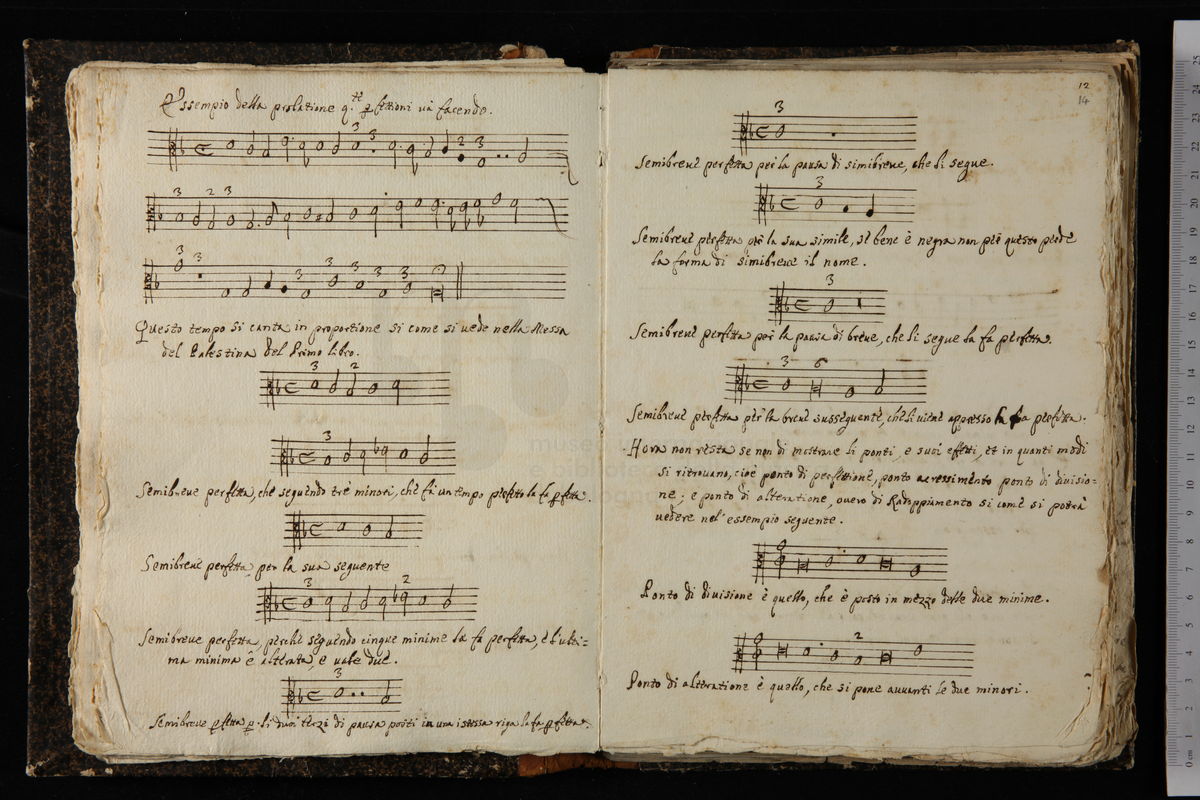 Essempio della prolatione q.te p fettioni và facendo.
3 3 2 3
3 2 3
3 3 3 3 3 3
Questo tempo si canta in proportione si come si vede nella Messa
del Palestina del Primo libro.
3 2
3
Semibreve perfetta, che seguendo trè minori, che fà un tempo pfetto la fa pfetta.
Semibreve perfetta, per la sua seguente
3 2
Semibreve perfetta, perche seguendo cinque minime la fà perfetta, e l'ulti=
ma minima è alterata e vale due.
3
Semibreve pfetta p li duoi terzi di pausa posti in una istessa riga la fa pfetta.
12
14
3
Semibreve perfetta per la pausa di simibreve, che li segue.
3
Semibreve perfetta per la sua simile, se bene è negra non per questo perde
la forma di simibreve il nome.
3
Semibreve perfetta per la pausa di breve, che li segue la fa perfetta.
3 6
Semibreve perfetta per la breve susseguente, che li viene appresso la fa perfetta.
Hora non resta se non di mostrare li ponti, e suoi effetti, et in quanti modi
si ritrovano, cioè ponto di perfettione, ponto accressimento ponto di divisio=
ne; e ponto di alteratione, overo di Radoppiamento si come si potrà
vedere nel' essempio seguente.
Ponto di divisione è quello, che è posto in mezzo delle due minime.
2
Ponto di alteratione è quello, che si pone avvanti le due minori.